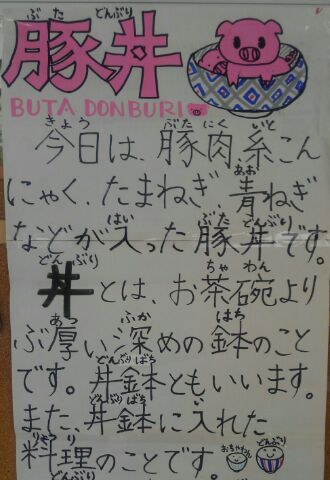 ぶた どんぶり
豚丼
BUTA DONBURI
きょう ぶた にく いと
今日は、豚肉、糸こん
あお
にゃく、たまねぎ 青ねぎ
はい ぶた どんぶり
などが入った豚丼です。
どん ぶり ちゃ わん
丼とは、お茶碗より
あつ ふか はち
ぶ厚い深めの鉢のこと
どんぶり ばち
です。丼鉢ともいいます。
どんぶり ばち い
また、丼鉢に入れた
りょう り
料理のことです。 おちゃわん どんぶり
どんぶり